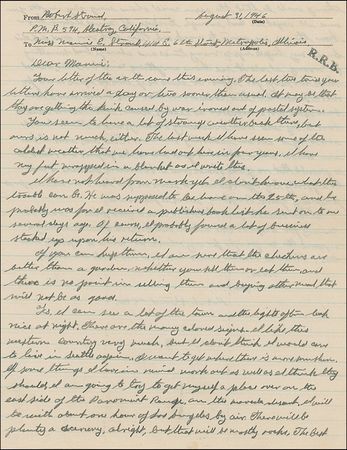 From Robert Stroud August 31, 1946
P.M.B. 594, Alcatraz, California.
To Miss Mamie E. Stroud, 414 E. 6th Street Metropolis, Illinois
(Name) (Address)
R.R.B.
Dear Mamie:
Your letter of the came this evening. The last two times your
letters have arrived a day or two sooner than usual. It may be that
they are getting the kinks caused by war ironed out of postal system.
You seem to have a lot of strange weather back there, but
ours is not much, either. The last week I have seen some of the
coldest weather that we have had out here in four years. I have
my feet wrapped in a blanket as I write this.
I have not heard from Mark yet. I don't know what the
trouble can be. He was supposed to be home on the 25th, and he
probably has received a publishers book list he sent on to me
several days ago. Of course, he probably found a lot of business
stacked up upon his return.
If you can keep them, I am sure that the chickens are
better than a garden, whether you sell them or eat them and
there is no point in selling them and buying other meat that
will not be as good.
Yes, I can see a lot of the town and the lights often look
nice at night. There are the many colored signs. I like this
western country very much, but I don't think I would care
to live in Seattle again. I want to get where there is more sunshine.
If some things I have in mind work out as well as I think they
should, I am going to try to get myself a place over on the
east side of the Range, on the Mojave desert. I will
be within about one hour of Los Angeles by air. There will be
plenty of scenery, alright, but that will be mostly rocks. The best